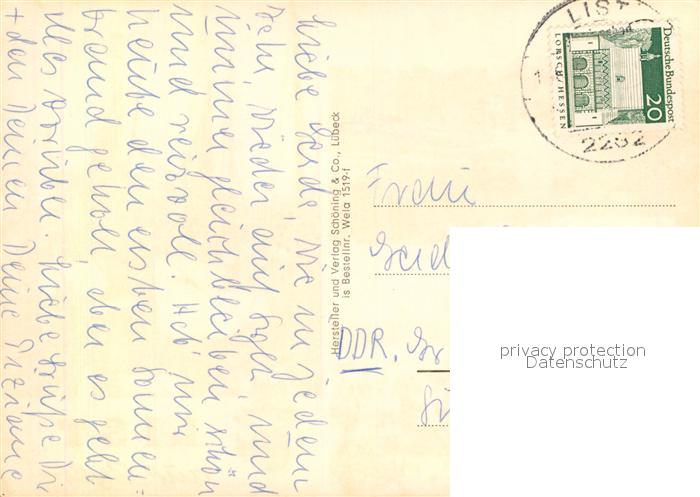 Liebe Gerda, wie in jedem
Jahr wieder auf Sylt und
immer gleichbleibend schön
und reizvoll. Hab' mir
heute den ersten Sonnen=
brand geholt, aber es geht
alles vorüber. Liebe Grüße Dir
+ den Deinen Deine
Hersteller und Verlag Schöning & Co., Lübeck
is Bestellnr. Wela 1519·f
LIST
2282
Deutsche Bundespost
20
LORSCH/HESSEN
Frau
DDR.
privacy protection
Datenschutz